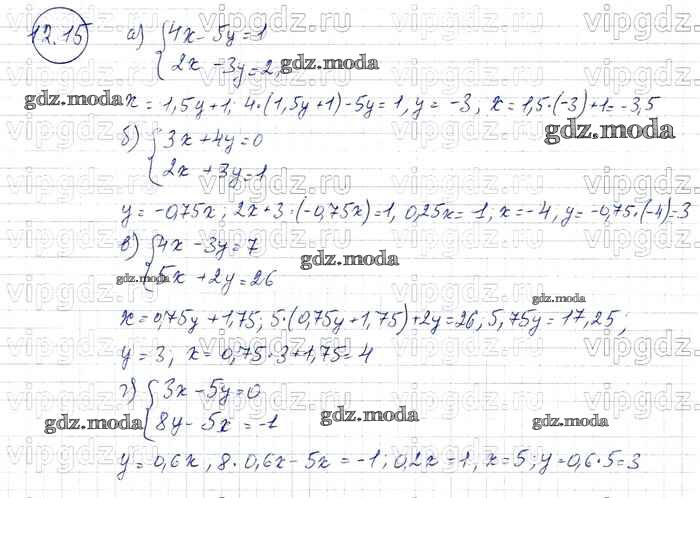 12.15 а) { 4x - 5y = 1
2x - 3y = 2,
x = 1,5y + 1; 4·(1,5y+1) - 5y = 1, y = -3, x = 1,5·(-3)+1 = -3,5
б) { 3x + 4y = 0
2x + 3y = 1
y = -0,75x; 2x + 3·(-0,75x) = 1, 0,25x = -1; x = -4, y = -0,75·(-4) = 3
в) { 4x - 3y = 7
5x + 2y = 26
x = 0,75y + 1,75; 5·(0,75y + 1,75) + 2y = 26, 5,75y = 17,25;
y = 3, x = 0,75·3 + 1,75 = 4
г) { 3x - 5y = 0
8y - 5x = -1
y = 0,6x, 8·0,6x - 5x = -1; 0,2x = 1, x = 5; y = 0,6·5 = 3
gdz.moda
vipgdz.ru